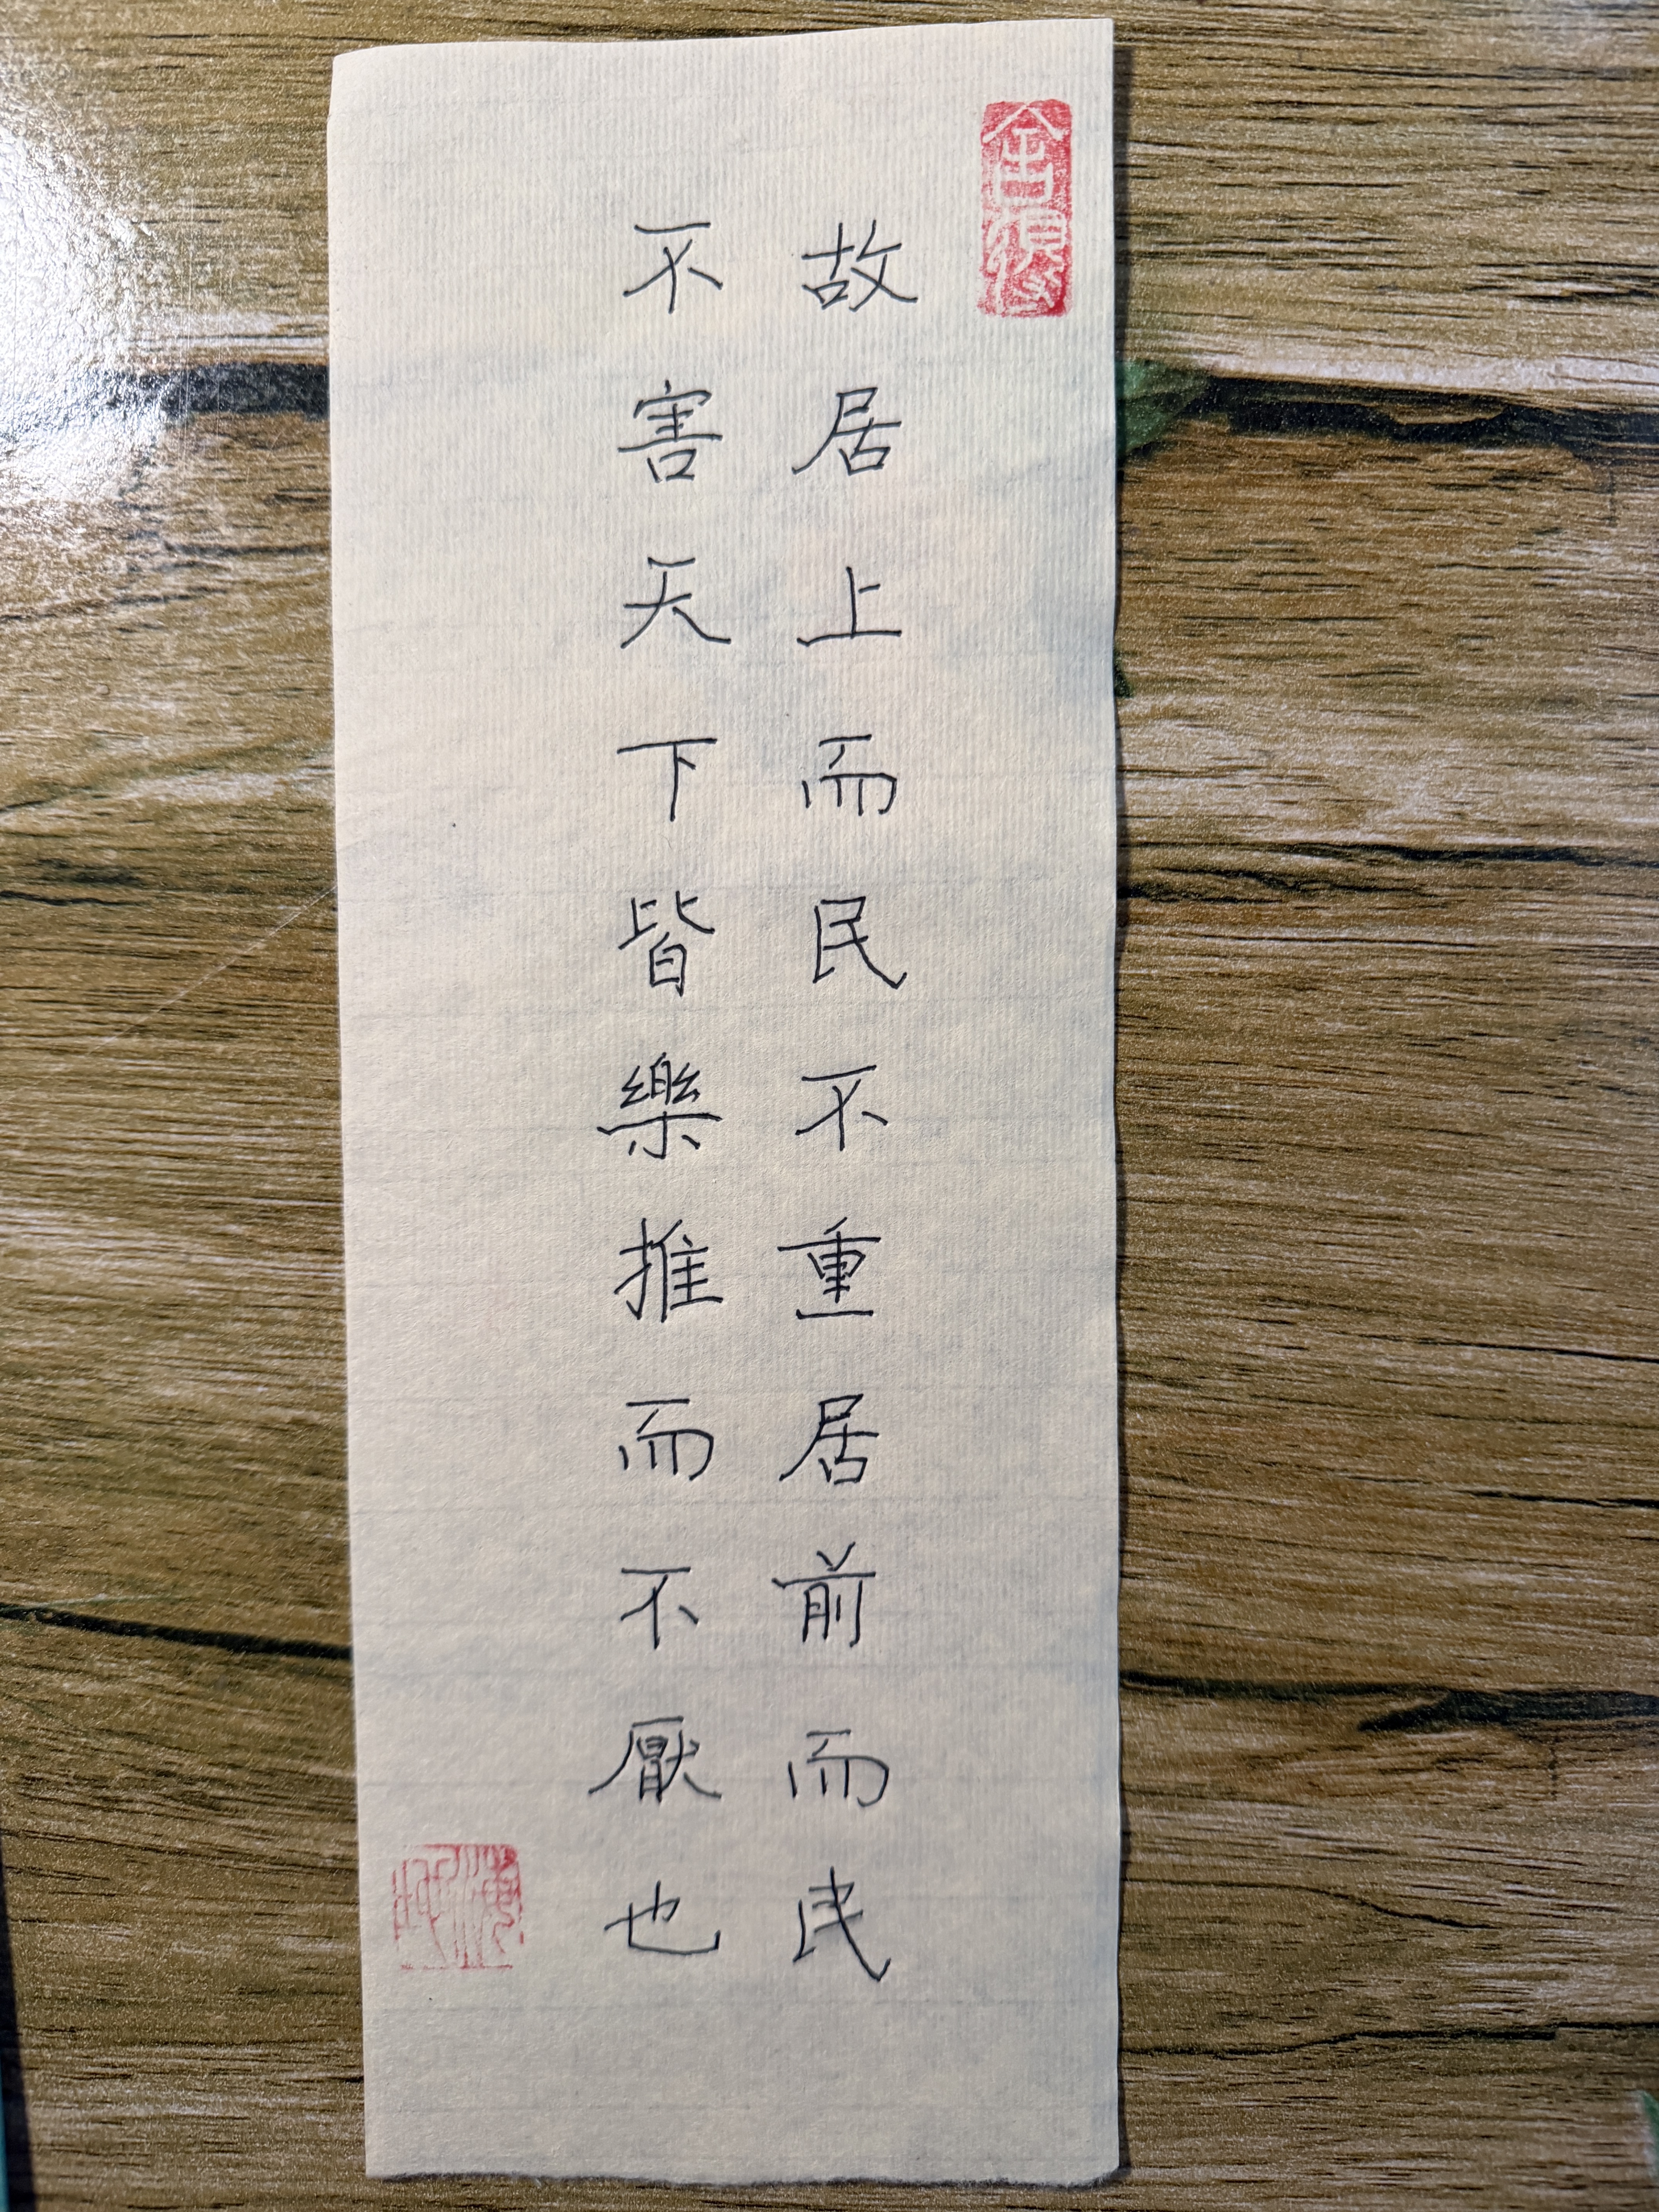 故居上而民不重居前而民
不害天下皆樂推而不厭也